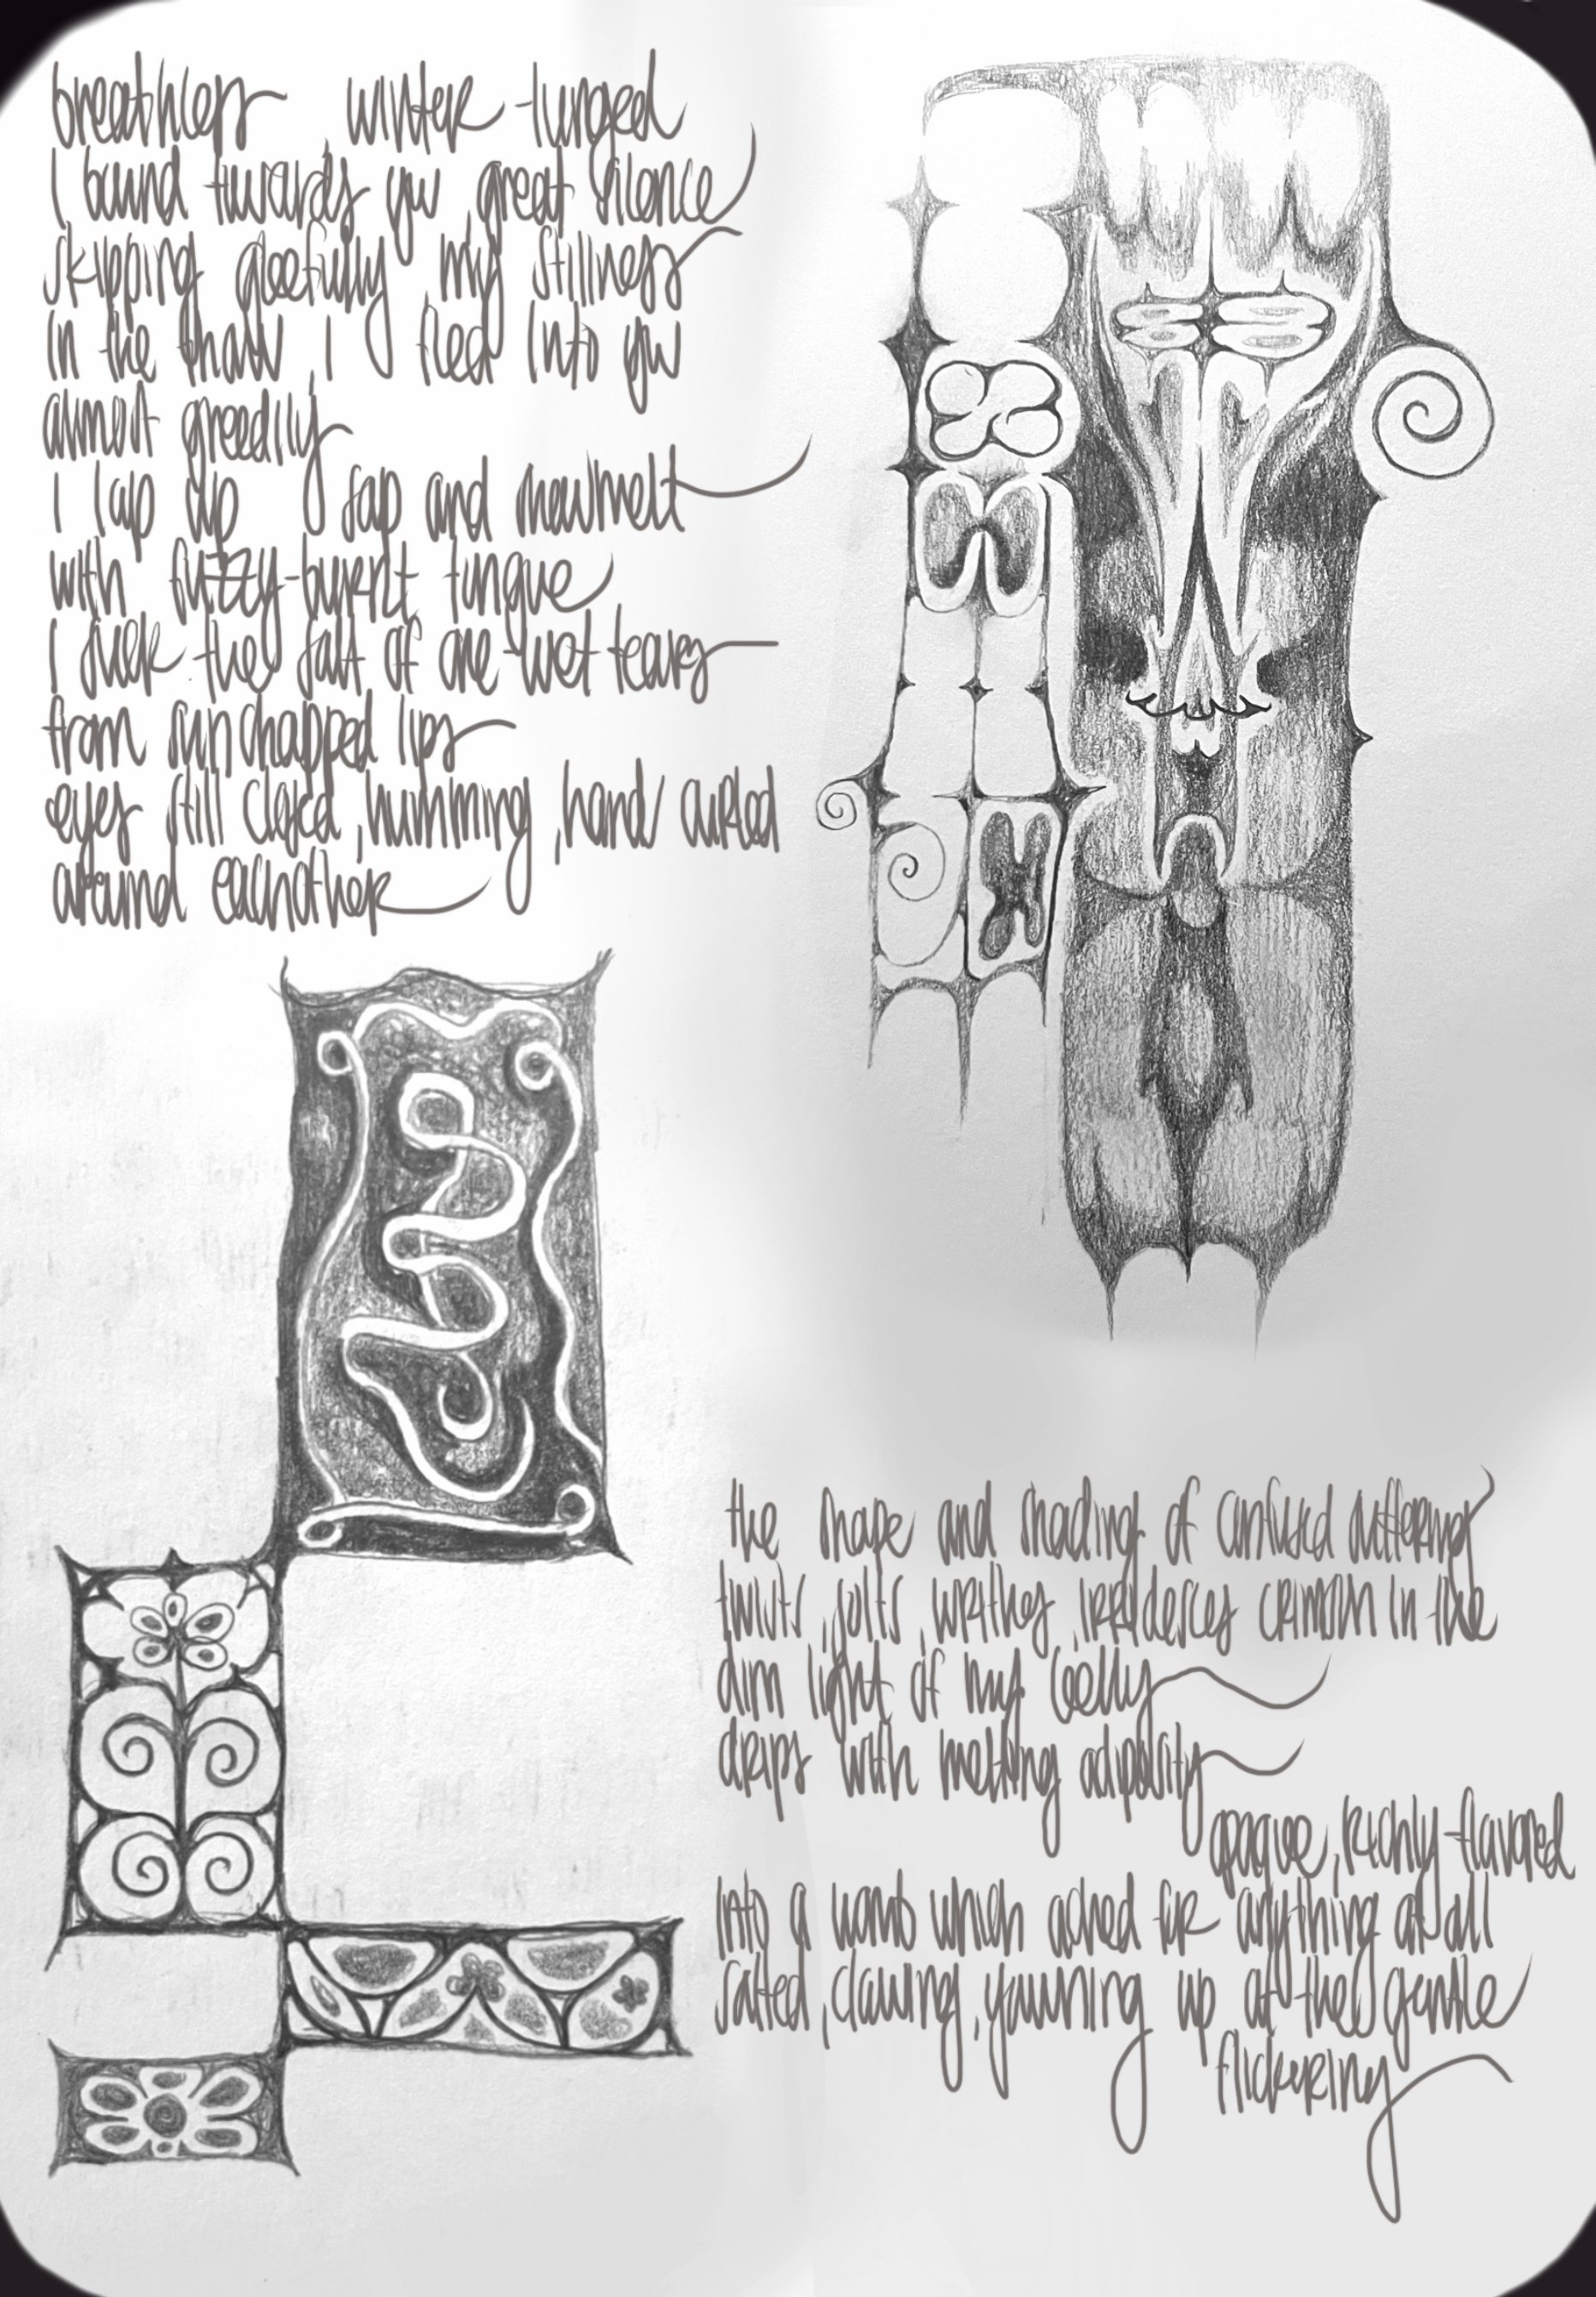 breathless, winter-lunged
I bound towards you, great silence
skipping gleefully, my stillness
in the thaw, I fled into you
almost greedily
I lap up sap and snowmelt
with fuzzy-burnt tongue
I suck the salt of once-wet tears
from sun chapped lips
eyes still closed, humming, hands curled
around eachother
the shape and shading of confused suffering
twists, jolts, writhes, irridesces crimson in the
dim light of my belly
drips with melting adiposity
opaque, richly-flavored
into a womb which ached for anything at all
salted, clawing, yawning up at the gentle
flickering